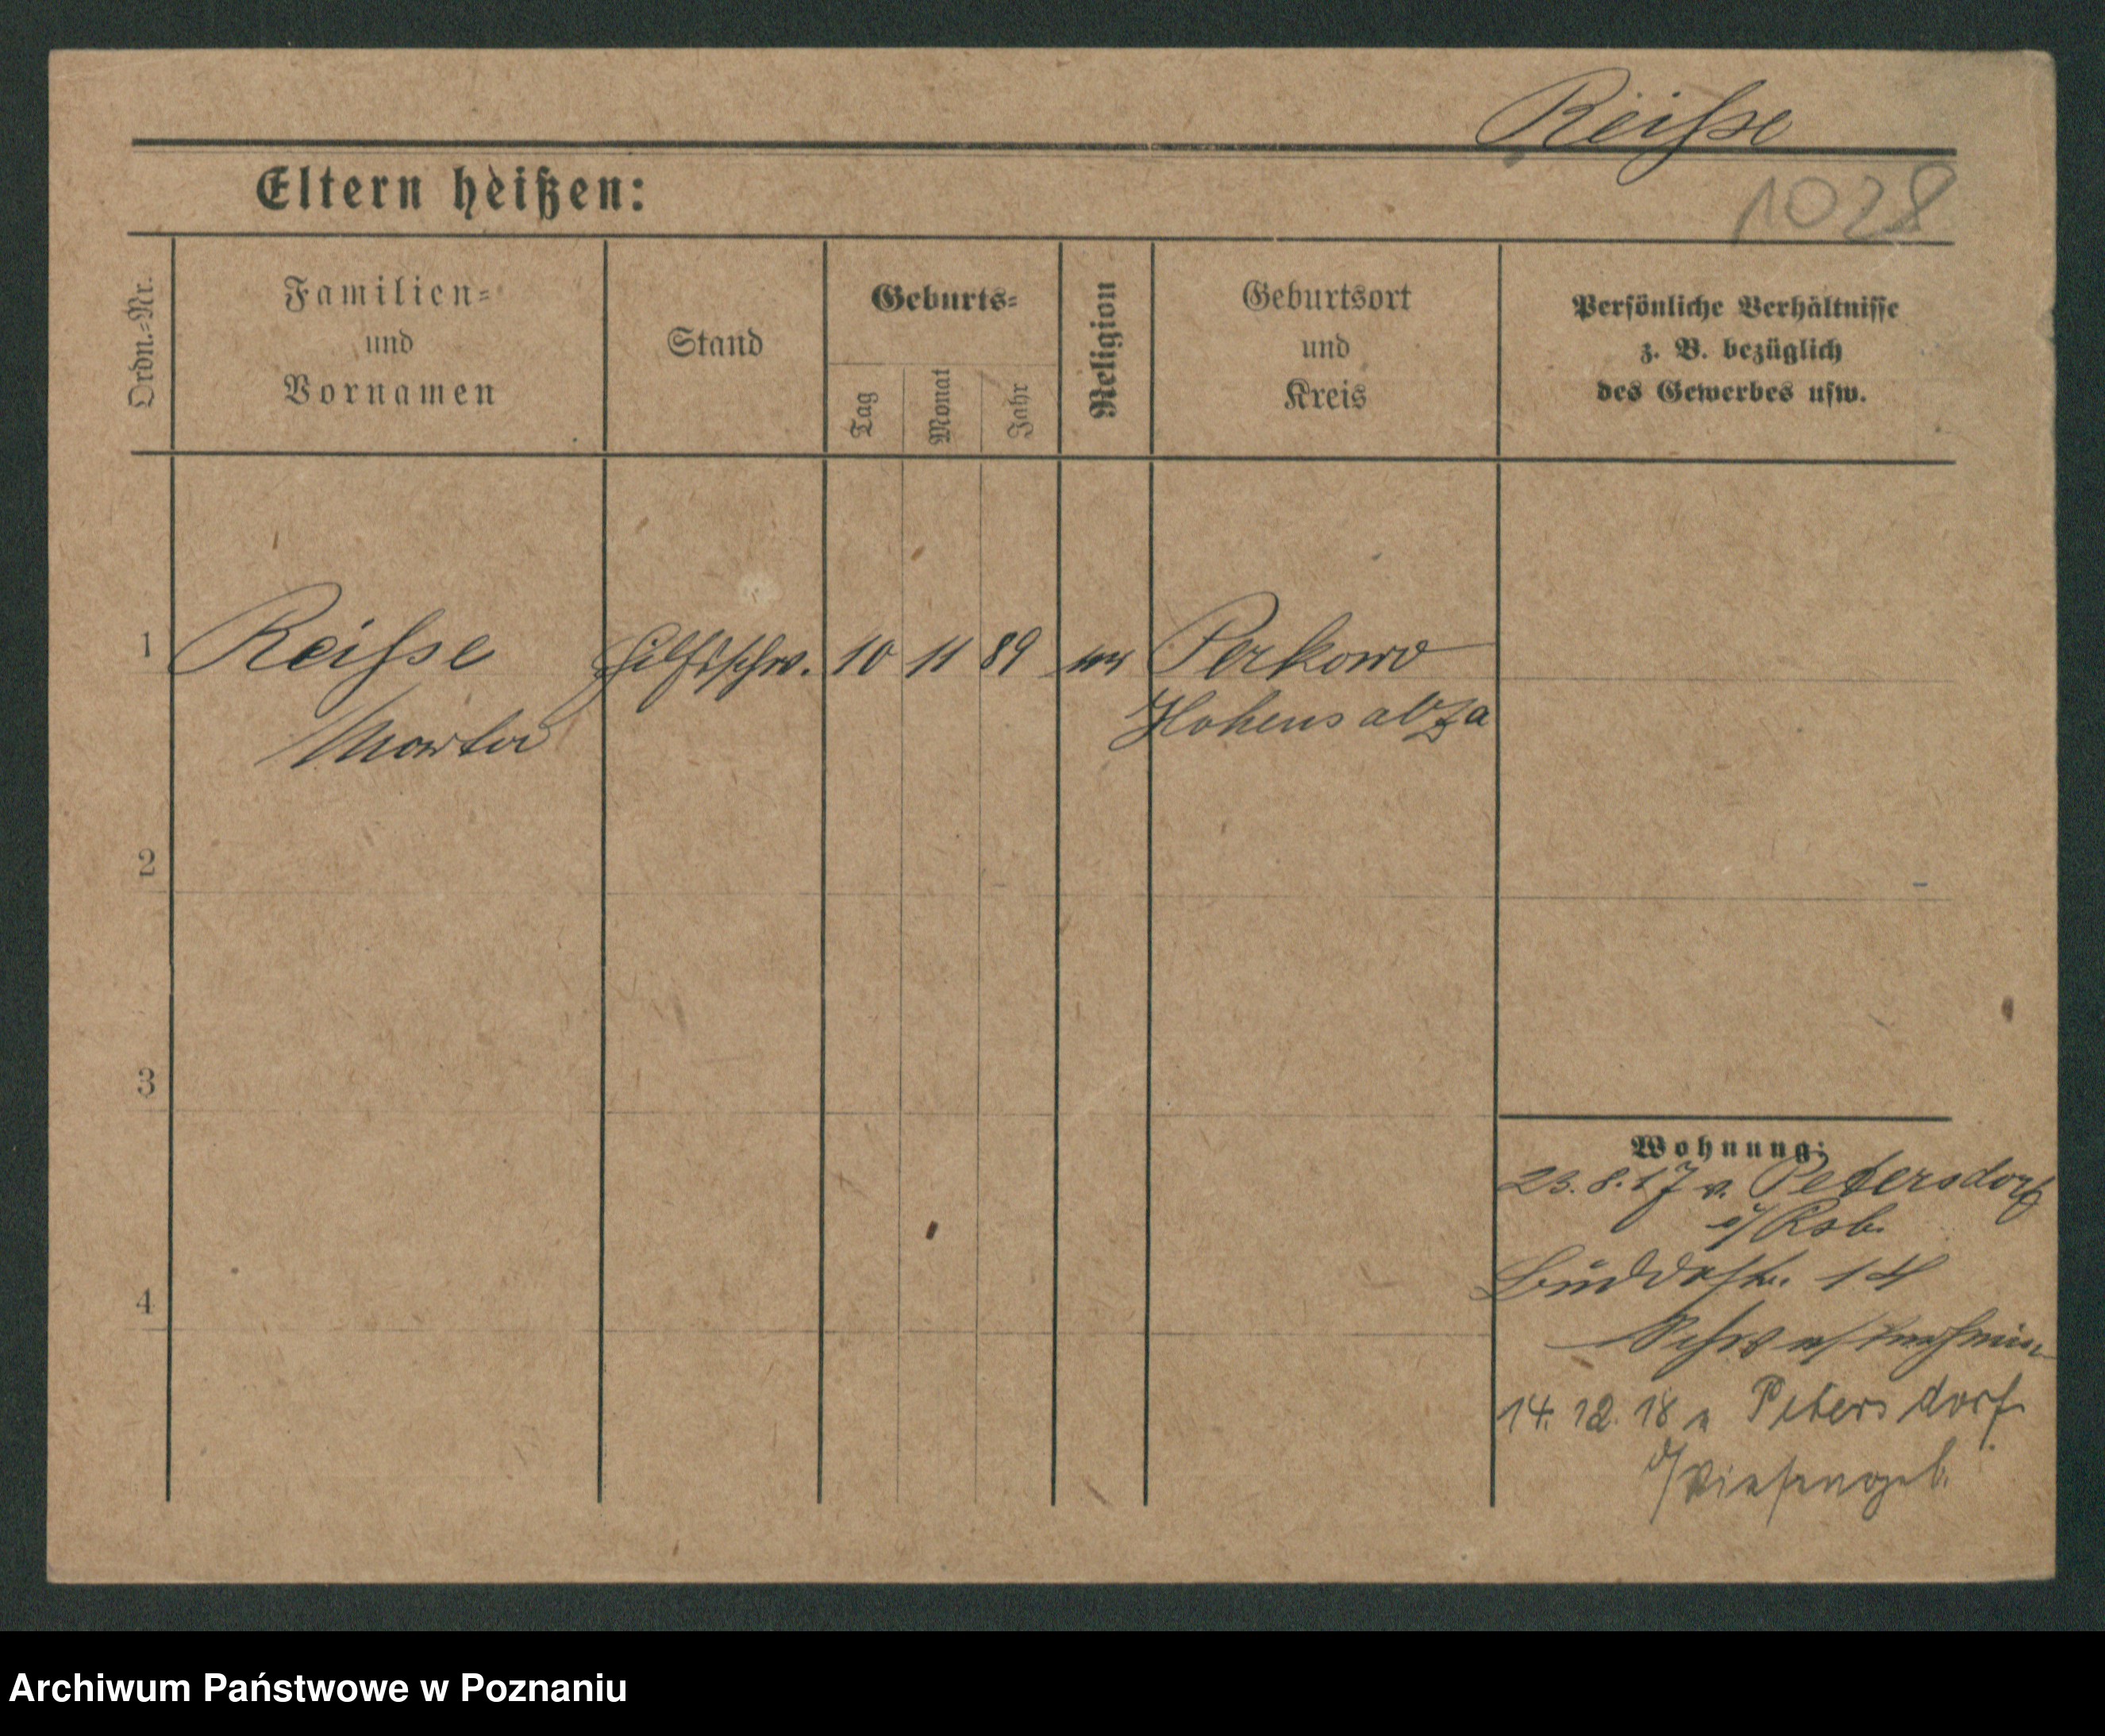 Reiſse
1028
Eltern heißen:
Ordn.-Nr.
Familien-
und
Vornamen
Stand
Geburts-
Tag
Monat
Jahr
Religion
Geburtsort
und
Kreis
Persönliche Verhältnisse
z. B. bezüglich
des Gewerbes usw.
1 Reiſse Hilfsschw. 10 11 89 Perkowo
Hohensalza
2
3
4
Wohnung:
23.8.17 v. Petersdorf
Rsb.
Buddestr. 14
14. 12. 18 n Petersdorf
Archiwum Państwowe w Poznaniu